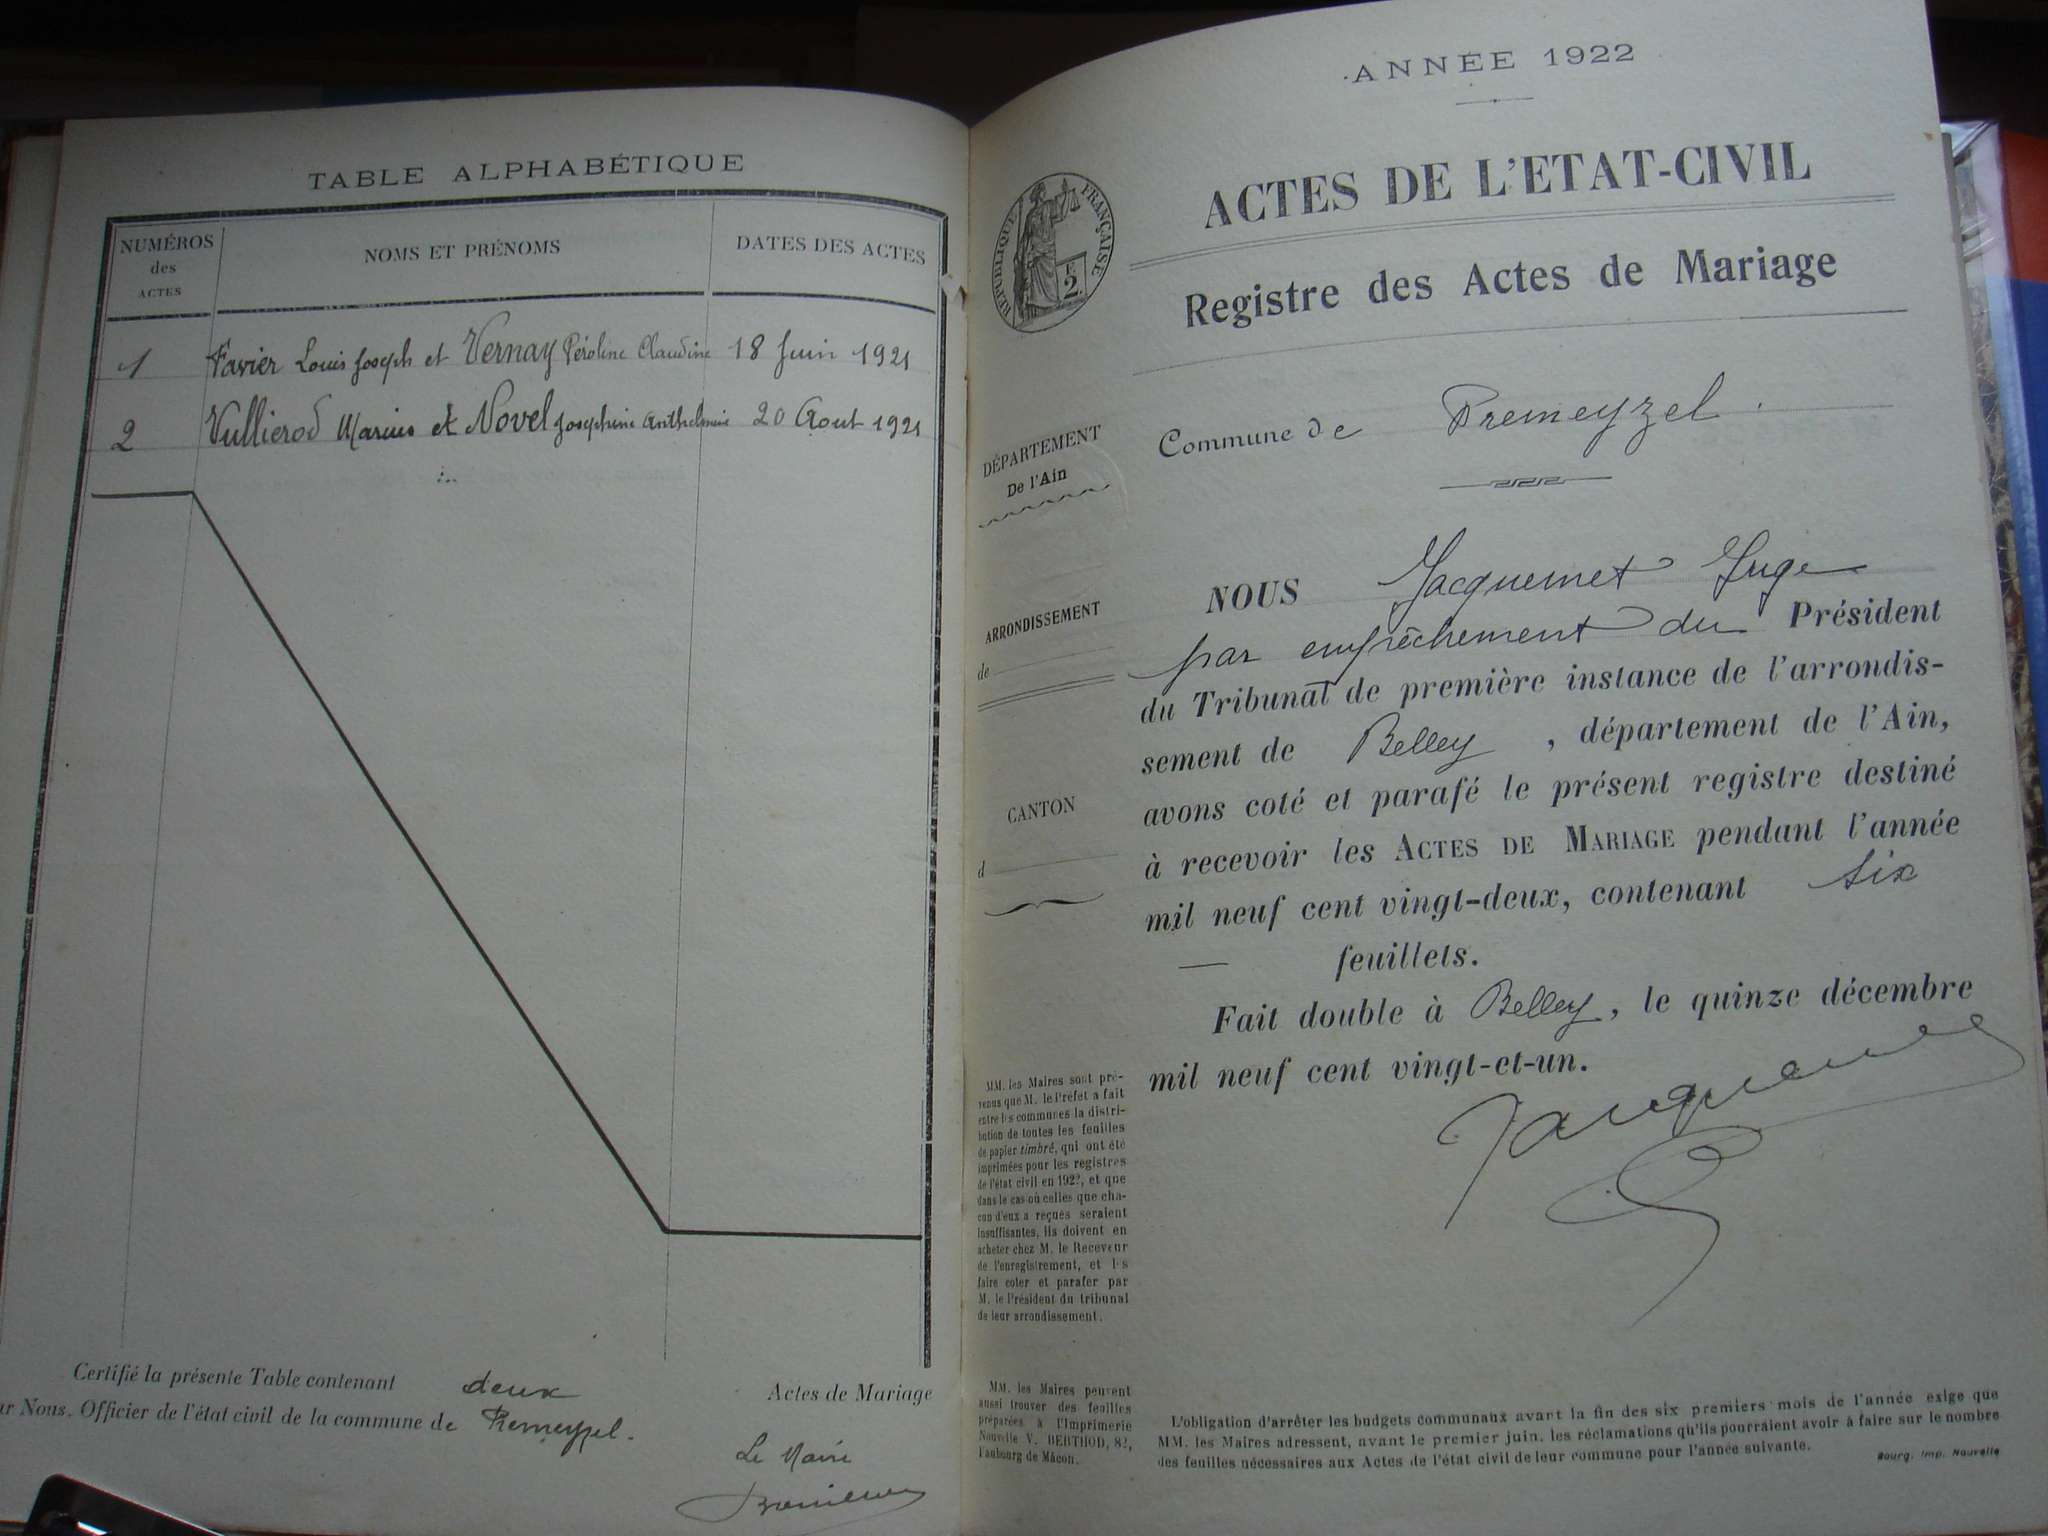 TABLE ALPHABÉTIQUE
NUMÉROS des ACTES
NOMS ET PRÉNOMS
DATES DES ACTES
1 Favier Louis Joseph et Vernay Péroline Claudine 18 Juin 1921
2 Vullierod Marius et Novel Josephine Anthelmine 20 Aout 1921
Certifié la présente Table contenant deux Actes de Mariage
ar Nous, Officier de l'état civil de la commune de Premeyzel.
Le Maire
ANNÉE 1922
ACTES DE L'ETAT-CIVIL
Registre des Actes de Mariage
RÉPUBLIQUE FRANÇAISE
2
Commune de Premeyzel.
DÉPARTEMENT
De l'Ain
ARRONDISSEMENT
de
CANTON
d
NOUS Jacquemet Juge
par empêchement du Président
du Tribunal de première instance de l'arrondis-
sement de Belley, département de l'Ain,
avons coté et parafé le présent registre destiné
à recevoir les ACTES DE MARIAGE pendant l'année
mil neuf cent vingt-deux, contenant six
— feuillets.
Fait double à Belley, le quinze décembre
mil neuf cent vingt-et-un.
Jacquemet
MM. les Maires sont pré-
venus que M. le Préfet a fait
entre les communes la distri-
bution de toutes les feuilles
de papier timbré, qui ont été
imprimées pour les registres
de l'état civil en 1922, et que
dans le cas où celles que cha-
cun d'eux a reçues seraient
insuffisantes, ils doivent en
acheter chez M. le Receveur
de l'enregistrement, et les
faire coter et parafer par
M. le Président du tribunal
de leur arrondissement.
MM. les Maires peuvent
aussi trouver des feuilles
préparées à l'Imprimerie
Nouvelle V. BERTHOD, 82,
Faubourg de Mâcon.
L'obligation d'arrêter les budgets communaux avant la fin des six premiers mois de l'année exige que
MM. les Maires adressent, avant le premier juin, les réclamations qu'ils pourraient avoir à faire sur le nombre
des feuilles nécessaires aux Actes de l'état civil de leur commune pour l'année suivante.
Bourg. Imp. Nouvelle